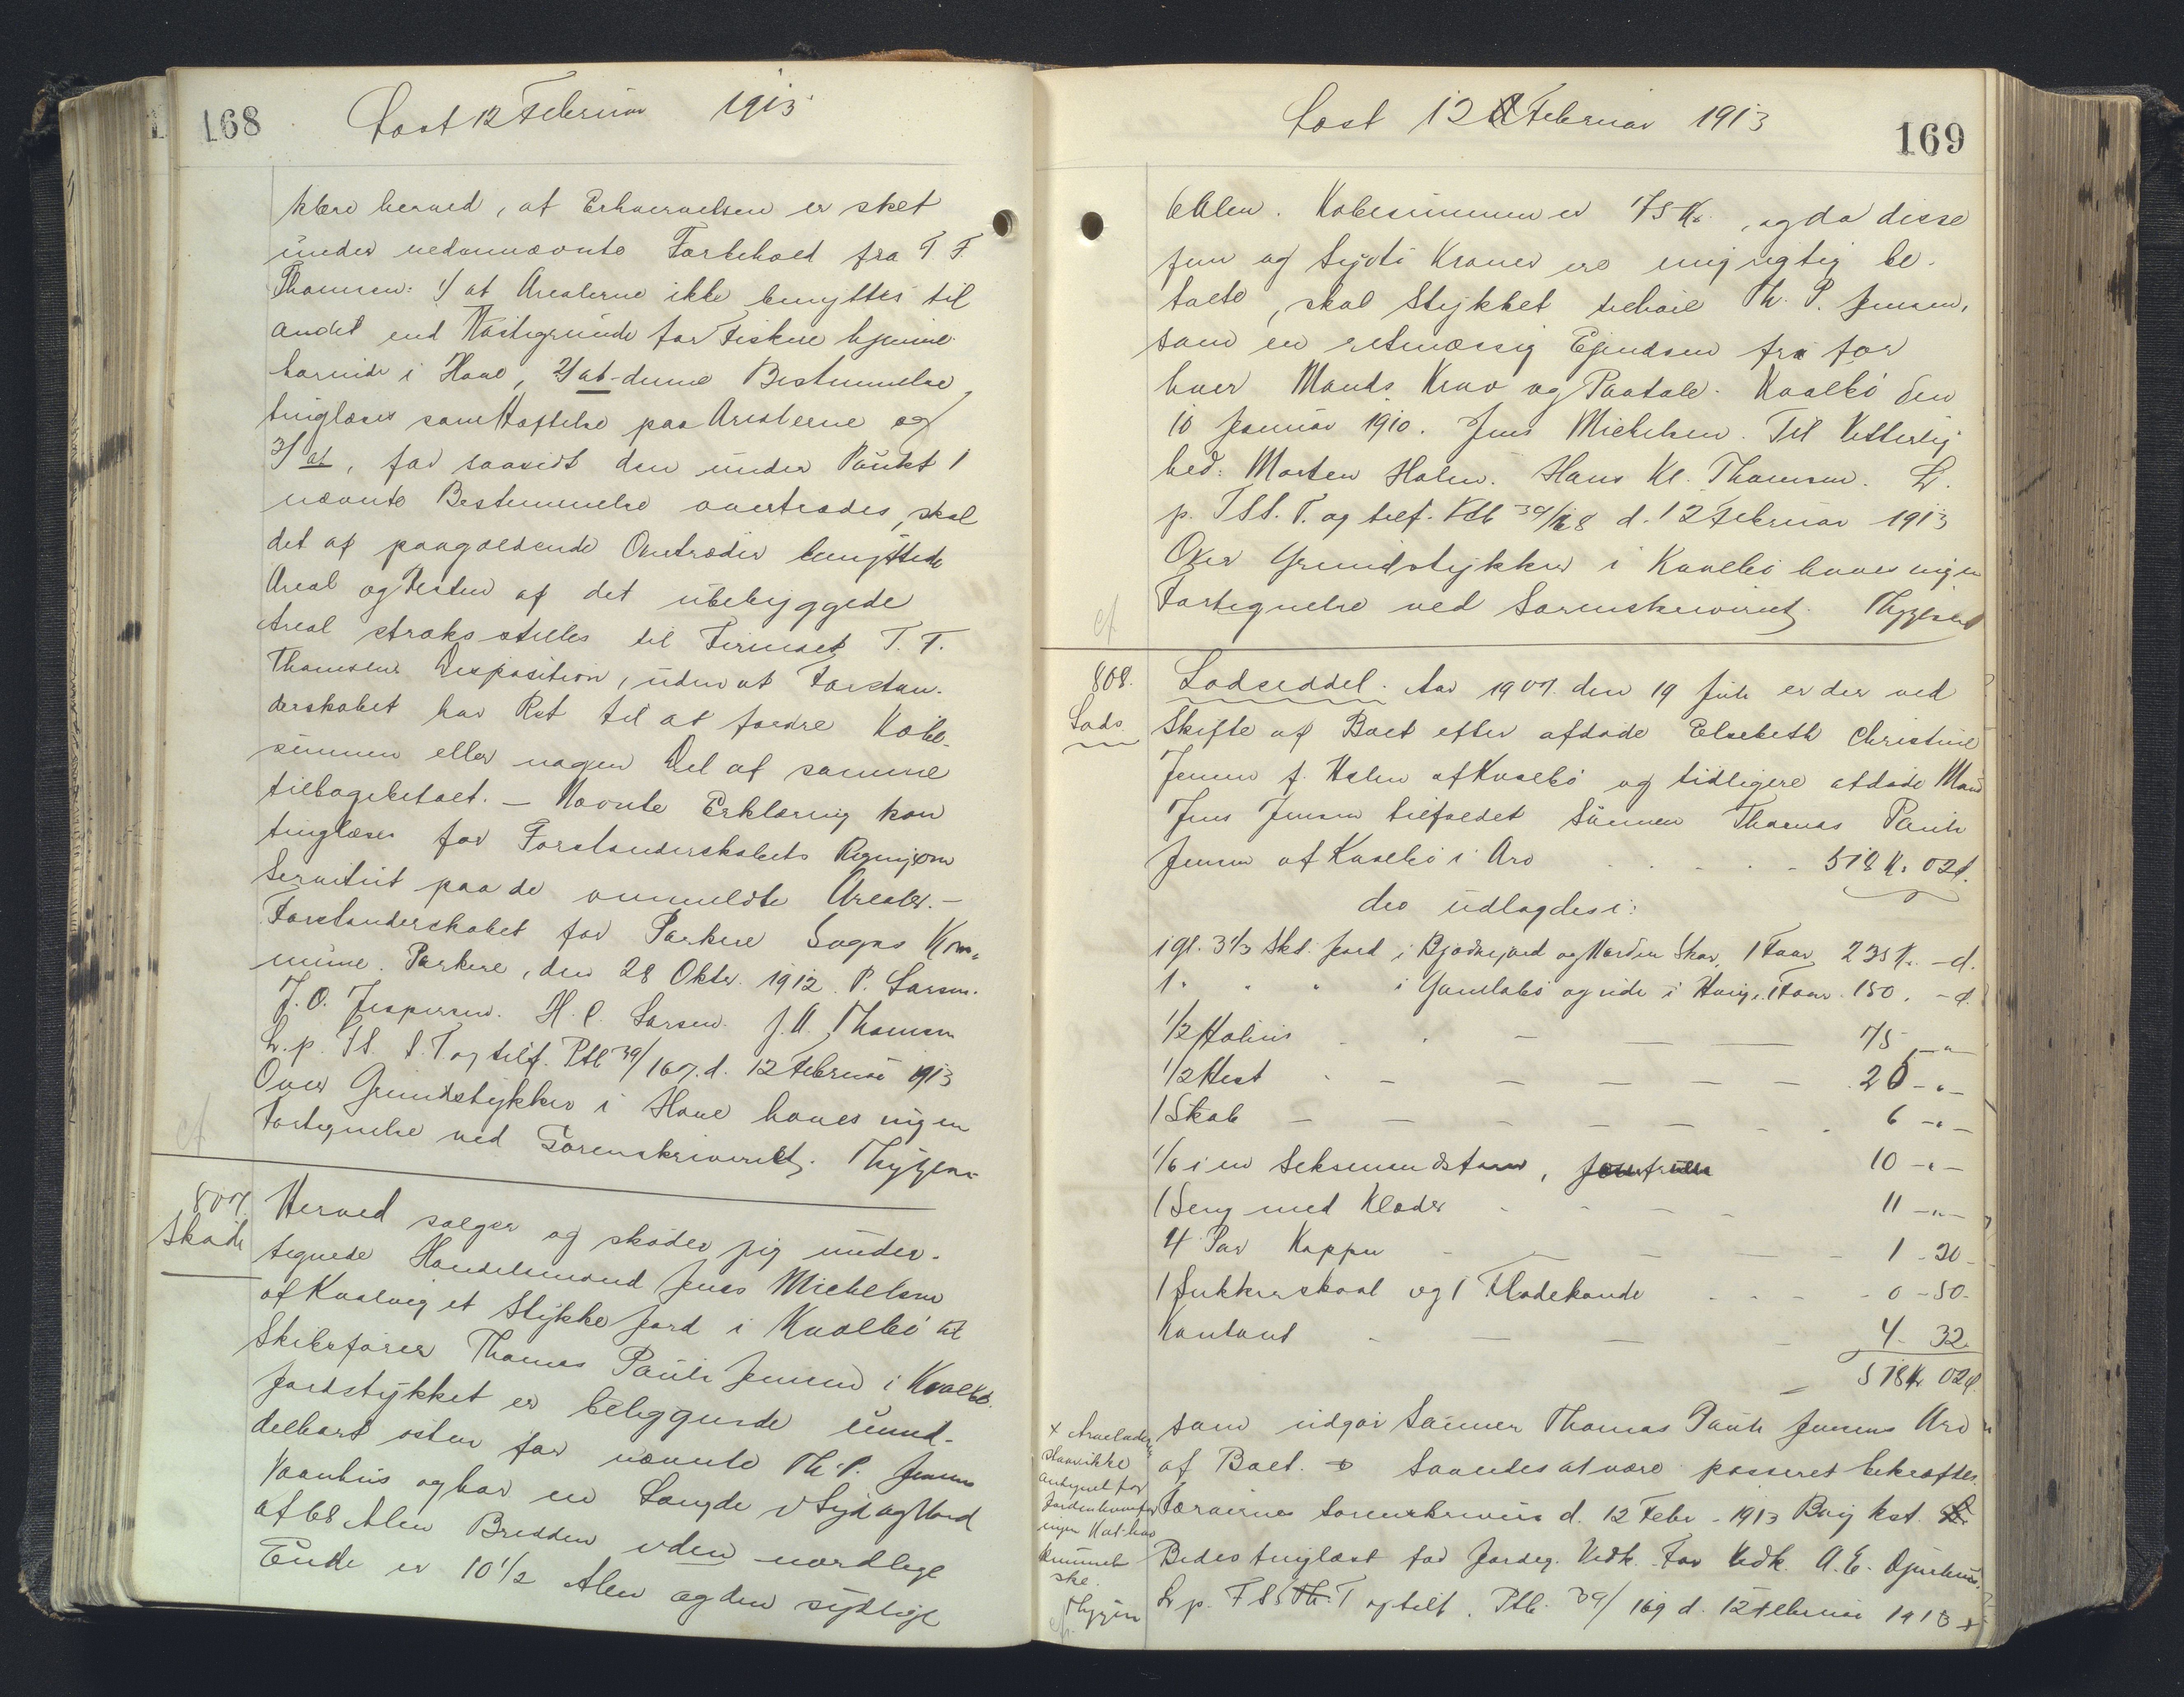 168 Læst 12 Februar 1913
klære herved, at Erhvervelsen er sket
under nedennævnte Forbehold fra T F.
Thomsen: 1/ at Arealerne ikke benyttes til
andet end Hustegrunde for Fiskere hjemme-
hørende i Hove, 2/ at denne Bestemmelse
tinglæses som Hæftelse paa Arealerne og
3/ at, for saavidt den under Punkt 1
nævnte Bestemmelse overtrædes, skal
det af paagældende Overtræder benyttede
Areal og Resten af det ubebyggede
Areal straks stilles til Firmaet T. F.
Thomsens Disposition, uden at Forstan-
derskabet har Ret til at fordre Købe-
summen eller nogen Del af samme
tilbagebetalt. — Nævnte Erklæring kan
tinglæses for Forstanderskabets Regning som
Servitut paa de ommeldte Arealer. —
Forstanderskabet for Porkere Sogns Kom-
mune. Porkere, den 28 Oktbr. 1912. P. Larsen.
J. O. Jespersen. H. C. Larsen. J. A. Thomsen
L. p. TS. S. T og tilf. Ptb 39/167. d. 12 Februar 1913
Over Grundstykker i Hove haves ingen
Fortegnelse ved Sorenskriveriet. Thygesen
cf
807. Herved sælger og skøder jeg under-
Skøde tegnede Handelsmand Jens Michelsen
af Kvalvig et Stykke Jord i Kvalbø til
Skibsfører Thomas Pauli Jensen i Kvalbø.
Jordstykket er beliggende umid-
delbart østen for nævnte Th. P. Jensens
Vaanhus og har en Længde i Syd og Nord
af 68 Alen Bredden i den nordlige
Ende er 10 1/2 Alen og den sydlige
Læst 12 Februar 1913 169
6 Alen. Købesummen er 75 Kr., og da disse
fem og Syvti Kroner ere mig rigtig be-
talte, skal Stykket tilhøre Th. P. Jensen,
som en retmæssig Ejendom fri for
hver Mands Krav og Paatale. Kvalbø den
10 Januar 1910. Jens Michelsen. Til Vitterlig-
hed: Morten Holm. Hans Kl. Thomsen. L.
p. TSS. T. og tilf. Ptb 39/168 d. 12 Februar 1913
Over Grundstykker i Kvalbø haves ingen
Fortegnelse ved Sorenskriveriet. Thygesen
cf
808. Lodseddel. Aar 1907. den 19 Juli er der ved
Lods. Skifte af Boet efter afdøde Elsebeth Christine
Jensen f. Holm af Kvalbø og tidligere afdøde Mand
Jens Jensen tilfaldet Sønnen Thomas Pauli
Jensen af Kvalbø i Arv 518 Kr 02 Ø.
der udlagdes i:
i gl. 3 1/3 Skd. Jord i og Norden Skov, 1 Faar 235 Kr. - Ø.
1 " " " i og ude i 1 Faar. 150. - Ø.
1/2 Holius — 75 - " -
1/2 Hest — 25 - " -
1 Skab — 6 - " -
1/6 i en Seksmandsfarer, 10 - " -
1 Seng med Klæder 11 - " -
4 Par Kopper 1 - 20 -
1 Sukkerskaal og 1 Flødekande 0 - 50 -
Kontant 4 - 32
518 Kr 02 Ø.
som udgør Sønnen Thomas Pauli Jensens Arv
af Boet. Saaledes at være passeret bekræftes.
Færøernes Sorenskriveri d. 12 Febr. 1913 Bay kst.
Bedes tinglæst for Jordeg. Vedk. For Vedk. A. E.
L. p. T S S T og tilf. Ptb. 39/169 d. 12 Februar 1913 +
+
staar ikke
antegnet for
Jorden hvorfor
ingen
kunnet
ske.
Thygesen
cf.